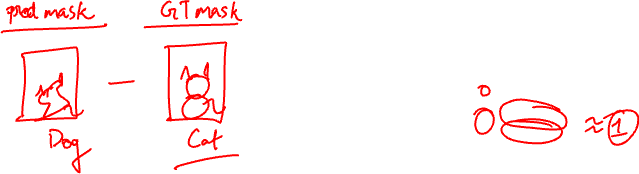 pred mask GT mask
Dog Cat
≈ 1